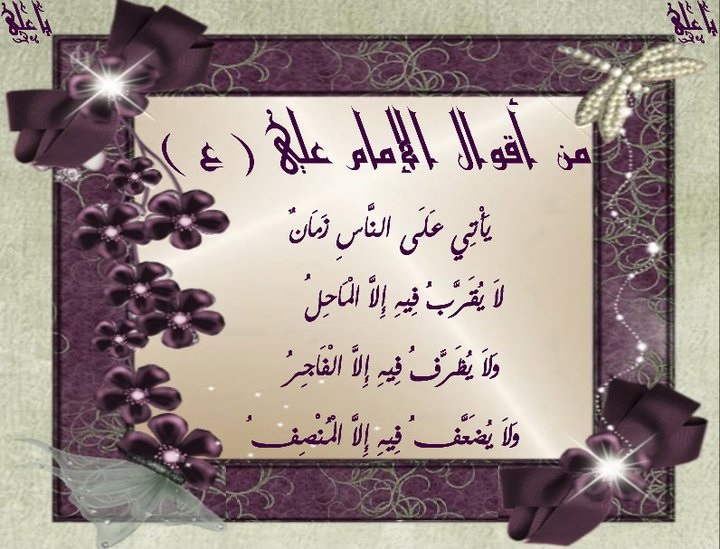 يا علي
يا علي
من أقوال الإمام علي ( ع )
يَأْتِي عَلَى النَّاسِ زَمَانٌ
لاَ يُقَرَّبُ فِيهِ إِلاَّ الْمَاحِلُ
وَلاَ يُظَرَّفُ فِيهِ إِلاَّ الْفَاجِرُ
وَلاَ يُضَعَّفُ فِيهِ إِلاَّ الْمُنْصِفُ